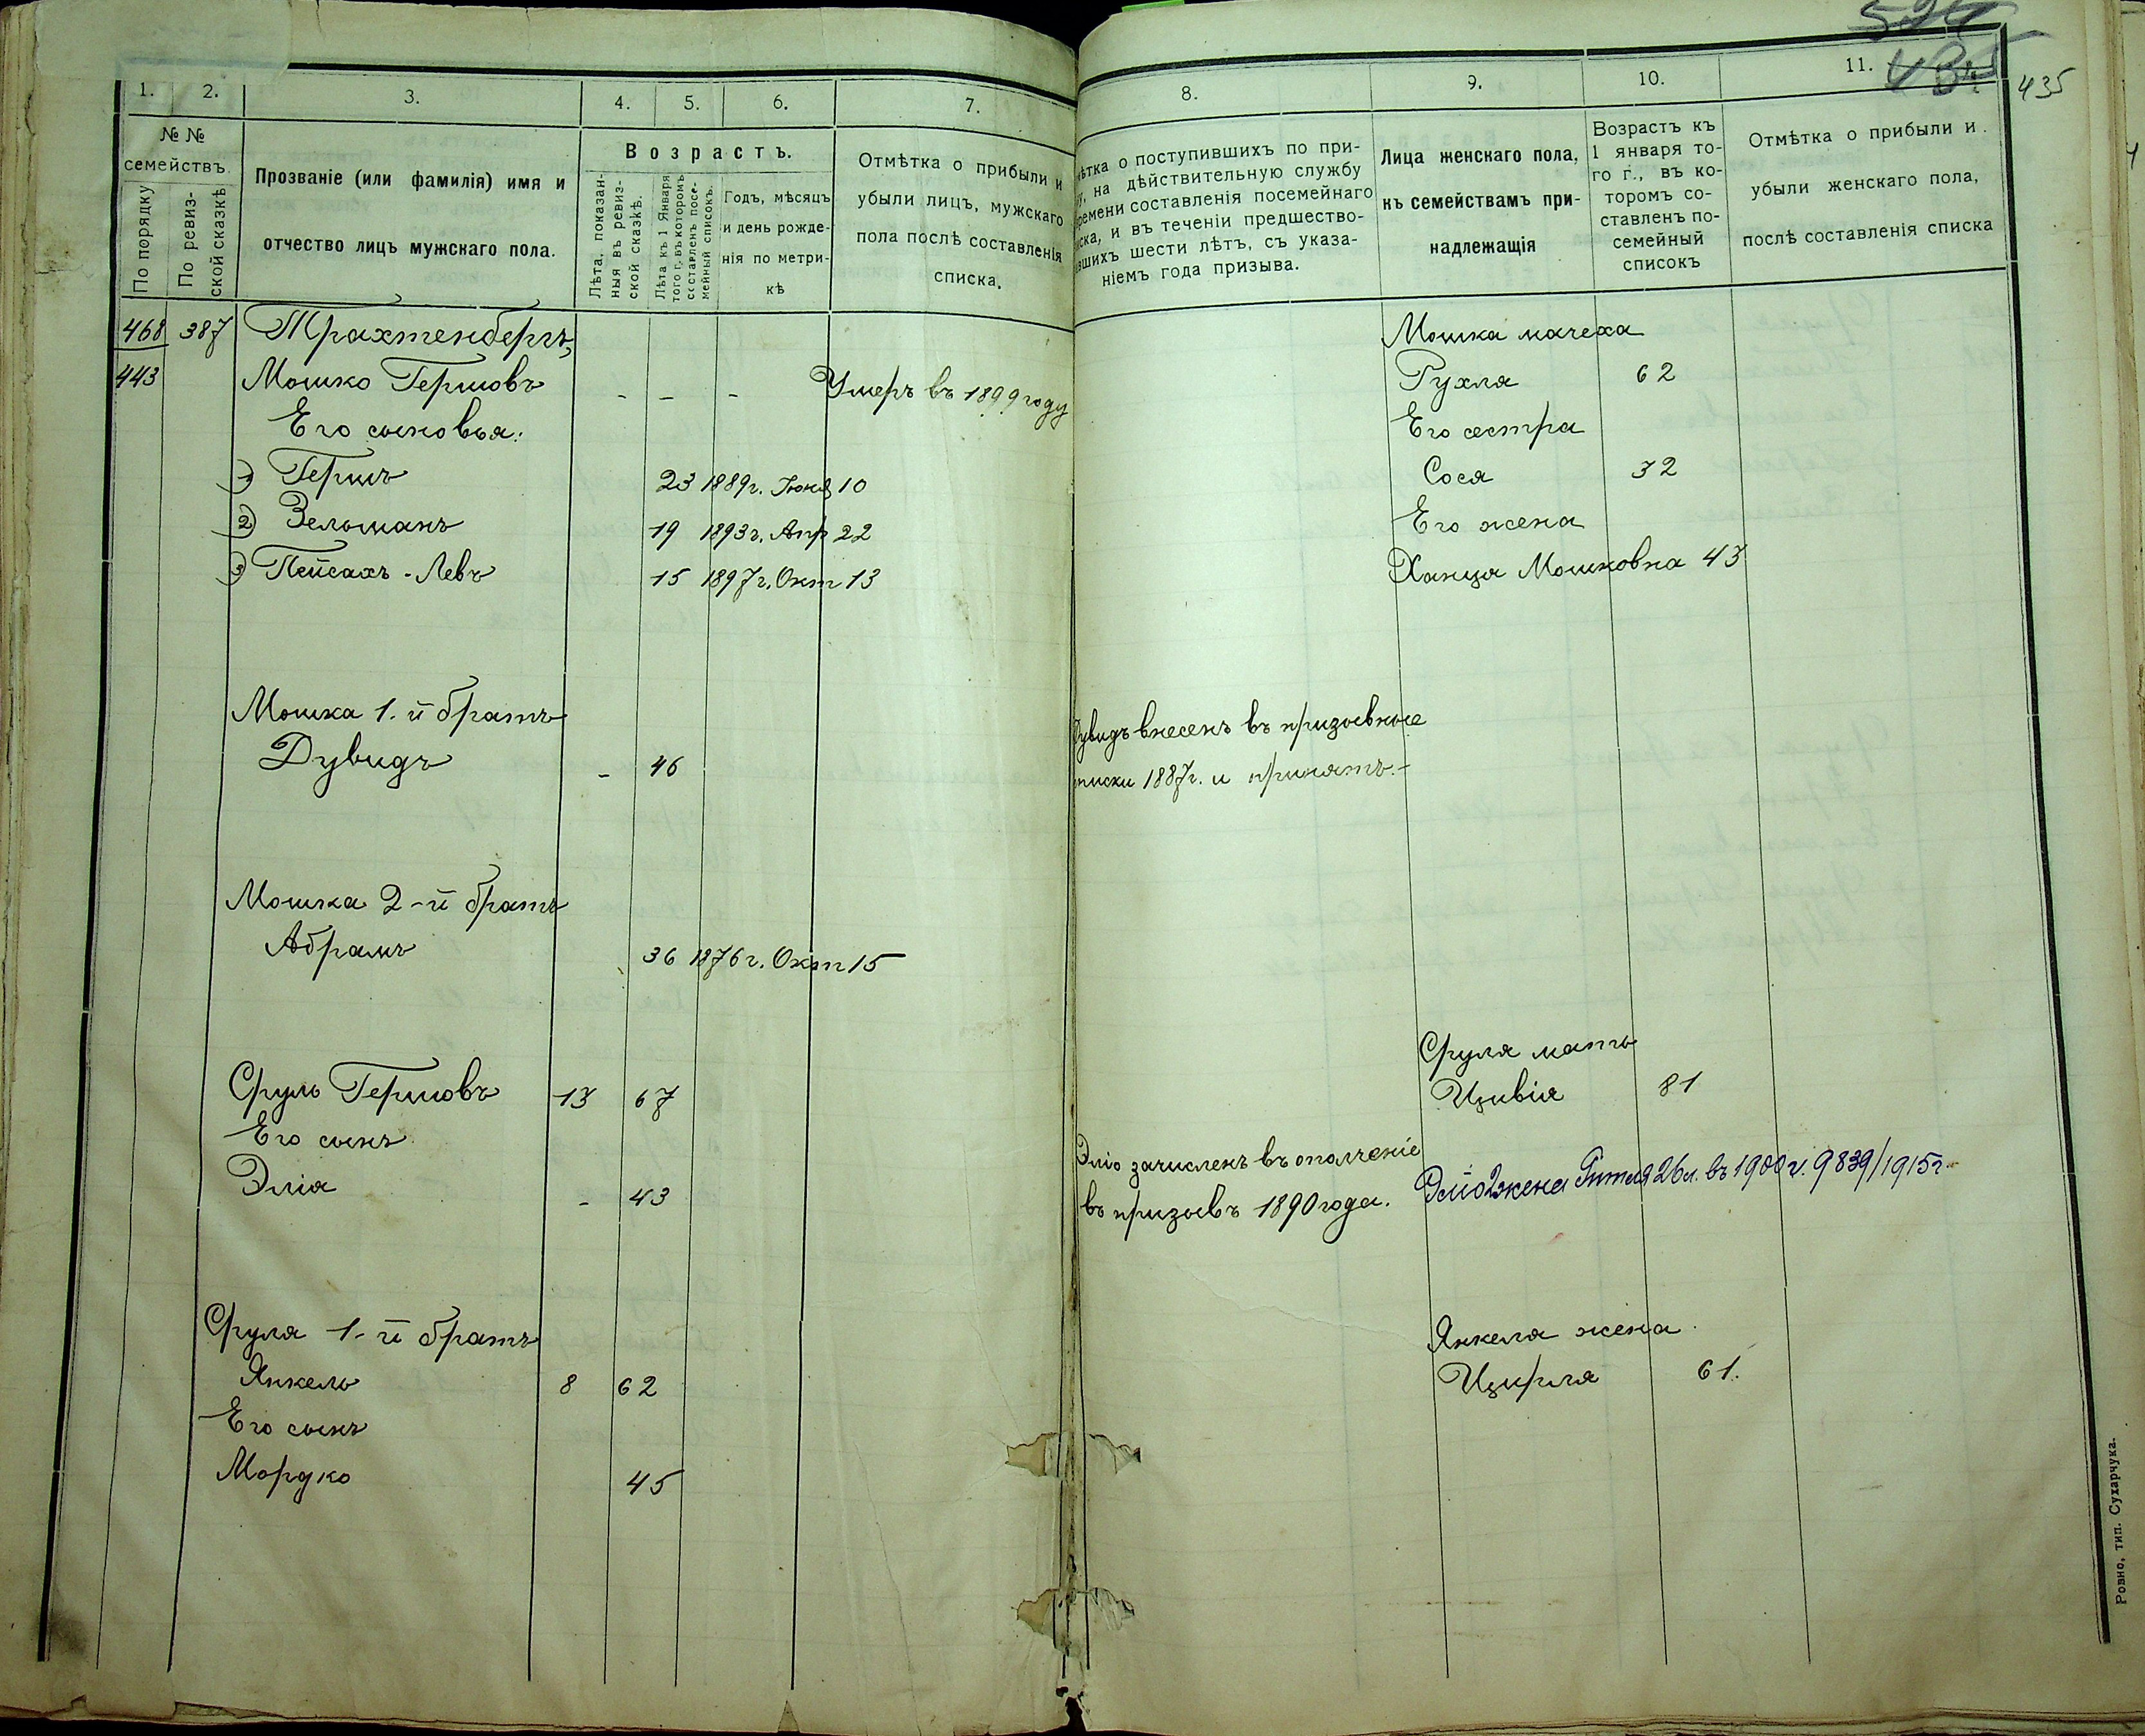 524
434
435
1. 2. 3. 4. 5. 6. 7.
№ №
семействъ.
По порядку
По ревиз-
ской сказкѣ
Прозваніе (или фамилія) имя и
отчество лицъ мужскаго пола.
Возрастъ.
Лѣта, показан-
ныя въ ревиз-
ской сказкѣ.
Лѣта къ 1 Января
того г., въ которомъ
составленъ посе-
мейный списокъ.
Годъ, мѣсяцъ
и день рожде-
нія по метри-
кѣ
Отмѣтка о прибыли и
убыли лицъ, мужскаго
пола послѣ составленія
списка.
468 387 Трахтенбергъ,
443 Мошко Гершовъ - - - Умеръ въ 1899 году
Его сыновья:
1) Гершъ 23 1889 г. Іюня 10
2) Зельманъ 19 1893 г. Апр 22
3) Пейсахъ-Левъ 15 1897 г. Окт 13
Мошка 1-й братъ
Дувидъ - 46
Мошка 2-й братъ
Абрамъ 36 1876 г. Окт 15
Сруль Гершовъ 13 67
Его сынъ
Эліа - 43
Сруля 1-й братъ
Янкель 8 62
Его сынъ
Мордко 45
8. 9. 10. 11.
ѣтка о поступившихъ по при-
у, на дѣйствительную службу
ремени составленія посемейнаго
иска, и въ теченіи предшество-
вшихъ шести лѣтъ, съ указа-
ніемъ года призыва.
Лица женскаго пола,
къ семействамъ при-
надлежащія
Возрастъ къ
1 января то-
го г., въ ко-
торомъ со-
ставленъ по-
семейный
списокъ
Отмѣтка о прибыли и
убыли женскаго пола,
послѣ составленія списка
Мошка мачеха
Рухля 62
Его сестра
Сося 32
Его жена
Ханця Мошковна 43
Дувидъ внесенъ въ призывные
списки 1887 г. и принятъ.-
Сруля мать
Цивія 81
Эліо зачисленъ въ ополченіе
въ призывъ 1890 года.
жена Гитля 26 л. въ 1900 г. 9839/1915 г.
Янкеля жена
Цирля 61.
Ровно, тип. Сухарчука.